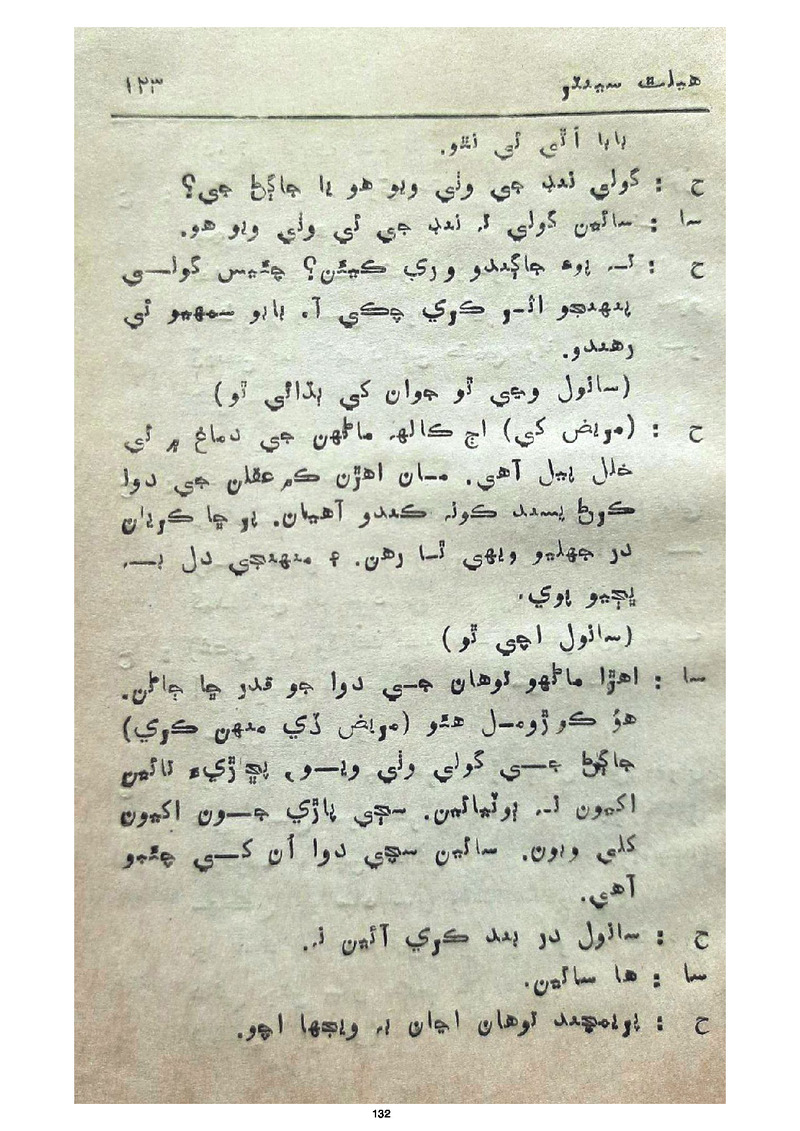 هيلٿ سينٽر ۱۲۳
بابا اُٿي ئي نٿو.
ح : گولي ننڊ جي وٺي ويو هو يا جاڳڻ جي؟
سا : سائين گولي تہ ننڊ جي ئي وٺي ويو هو.
ح : تہ پوءِ جاڳندو وري ڪيئن؟ چئينس گولي
پنهنجو اثر ڪري چڪي آ. بابو سمهيو ئي
رهندو.
(سانول وڃي ٿو جوان کي ٻڌائي ٿو)
ح : (مريض کي) اڄ ڪالهہ ماڻهن جي دماغ ۾ ئي
خلل پيل آهي. مان اهڙن ڪم عقلن جي دوا
ڪرڻ پسند ڪونہ ڪندو آهيان. پر ڇا ڪريان
در جهليو ويهي ٿا رهن. ۽ منهنجي دل بہ
ڀڄيو پوي.
(سانول اچي ٿو)
سا : اهڙا ماڻهو توهان جي دوا جو قدر ڇا ڄاڻن.
هُو ڪوڙومل هئو (مريض ڏي منهن ڪري)
جاڳڻ جي گولي وٺي ويو، پڇاڙيءَ تائين
اکيون نہ ٻوٽيائين. سڄي پاڙي جون اکيون
کلي ويون. سائين سڄي دوا اُن کي چئبو
آهي.
ح : سانول در بند ڪري آئين نہ.
سا : ها سائين.
ح : پريمچند توهان اڃان بہ ويجها اچو.
132